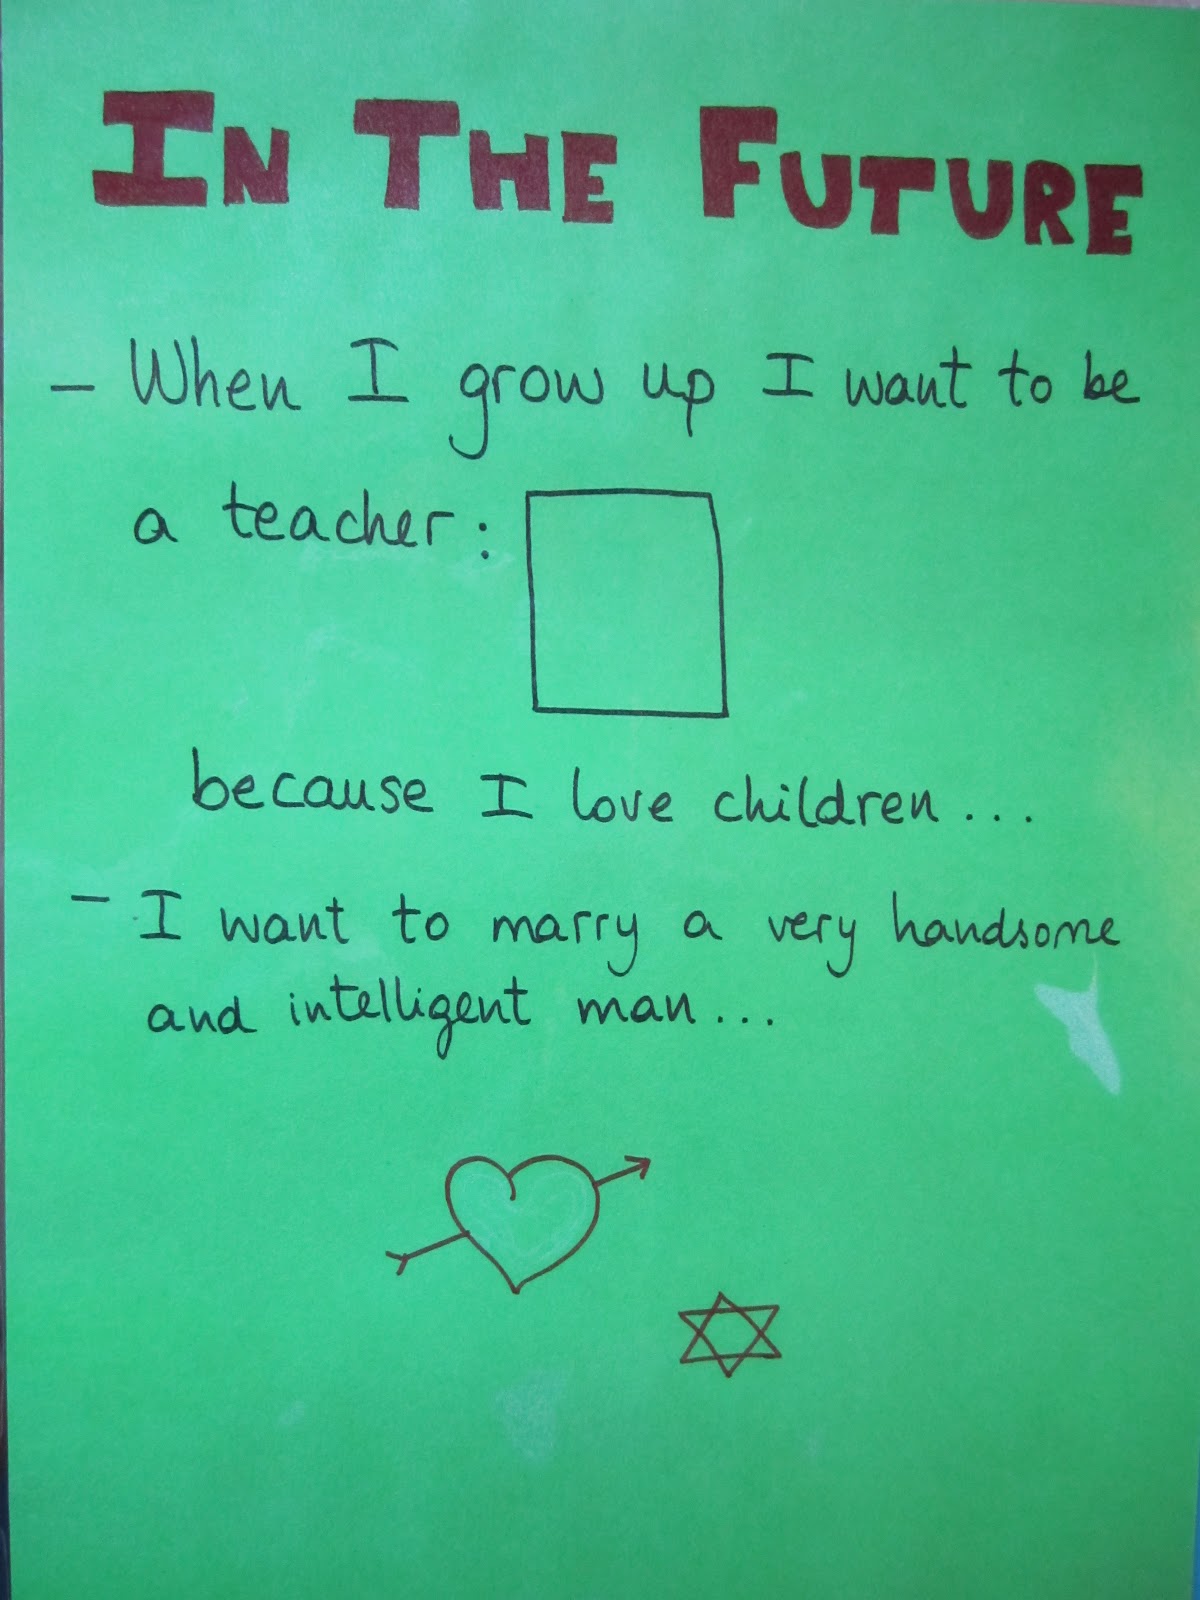 IN THE FUTURE
– When I grow up I want to be
a teacher:
because I love children...
– I want to marry a very handsome
and intelligent man...